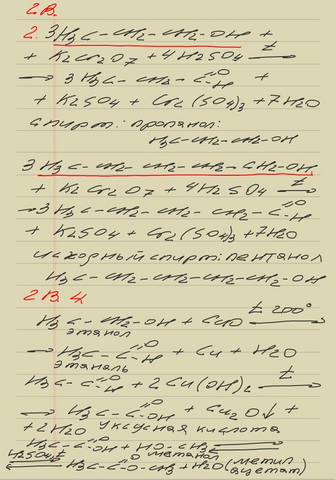 2В.
2. 3H₃C-CH₂-CH₂-OH +
+ K₂Cr₂O₇ + 4H₂SO₄ t→
→ 3 H₃C-CH₂-C=O-H +
+ K₂SO₄ + Cr₂(SO₄)₃ + 7H₂O
спирт: пропанол:
H₃C-CH₂-CH₂-OH
3 H₃C-CH₂-CH₂-CH₂-CH₂-OH
+ K₂Cr₂O₇ + 4H₂SO₄ t→
→3 H₃C-CH₂-CH₂-CH₂-C=O-H
+ K₂SO₄ + Cr₂(SO₄)₃ + 7H₂O
исходный спирт: пентанол
H₃C-CH₂-CH₂-CH₂-CH₂-OH
2В. 4
H₃C-CH₂-OH + CuO t 200°→
этанол
→ H₃C-C=O-H + Cu + H₂O
этаналь
H₃C-C=O-H + 2Cu(OH)₂ t→
→ H₃C-C=O-OH + Cu₂O↓ +
+ 2H₂O уксусная кислота
H₃C-C=O-OH + HO-CH₃ ⇌
метанол
H₂SO₄, t H₃C-C=O-O-CH₃ + H₂O (метил
ацетат)